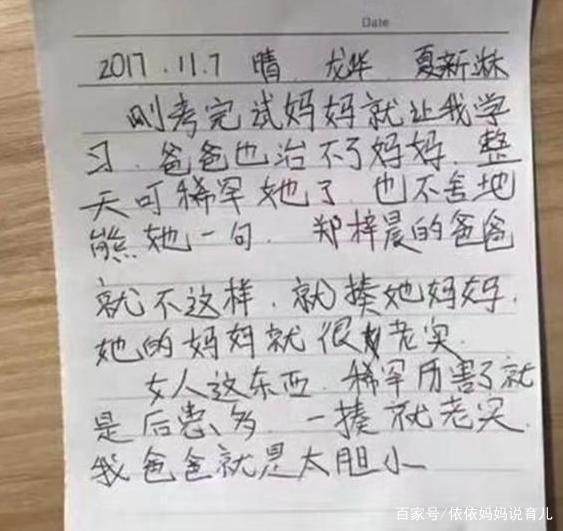 Date
2017.11.7 晴 龙华 夏新淋
刚考完试妈妈就让我学
习.爸爸也治不了妈妈.整
天可稀罕她了.也不舍地
熊她一句.郑梓晨的爸爸
就不这样.就揍她妈妈.
她的妈妈就很老实.
女人这东西.稀罕历害了就
是后患、多.一揍就老实.
我爸爸就是太胆小
百家号/依依妈妈说育儿